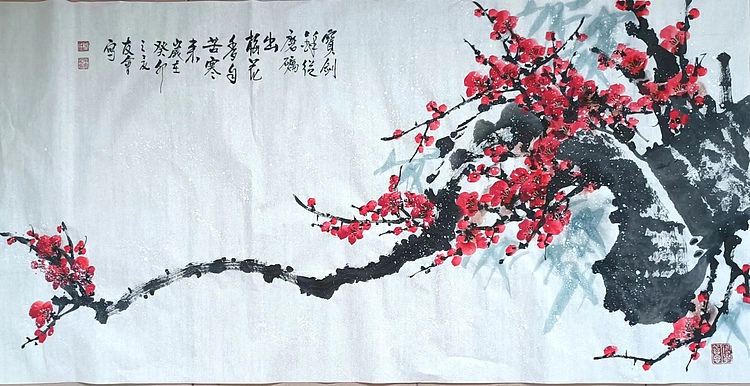 寶劍
鋒從
磨礪
出
梅花
香自
苦寒
來
歲在
癸卯
之夏
友會
寫